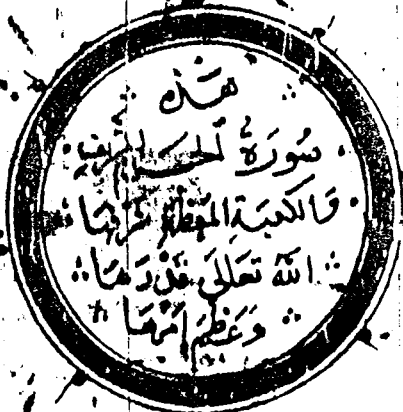 هذه
صورة الحرم الشريف
والكعبة المعظمة شرفها
الله تعالى قدرها
وعظم أمرها